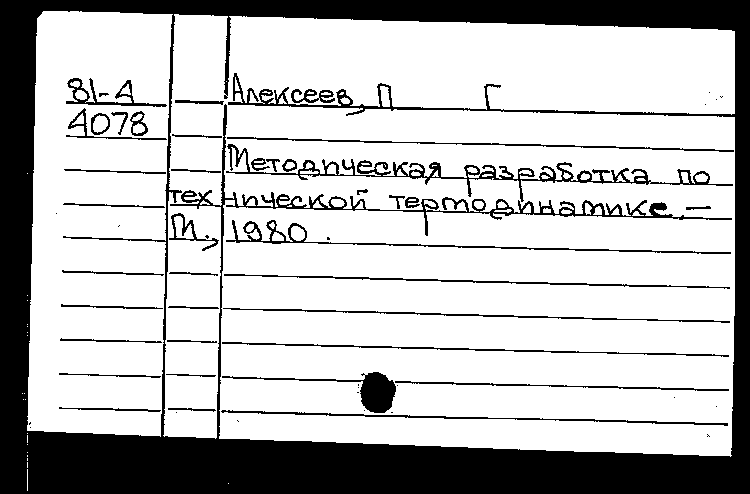 81-А Алексеев, П Г
4078
Методическая разработка по
технической термодинамике. —
М., 1980.